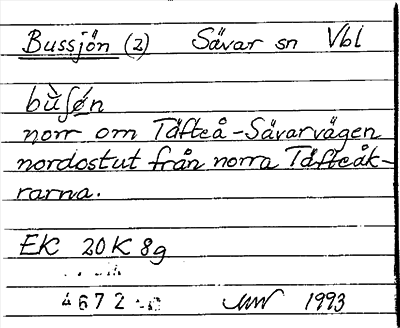 Bussjön (2) Sävar sn Vbl
bùʃøn
norr om Täfteå-Sävarvägen
nordostut från norra Täfteåk-
rarna.
EK 20K 8g
4672
1993